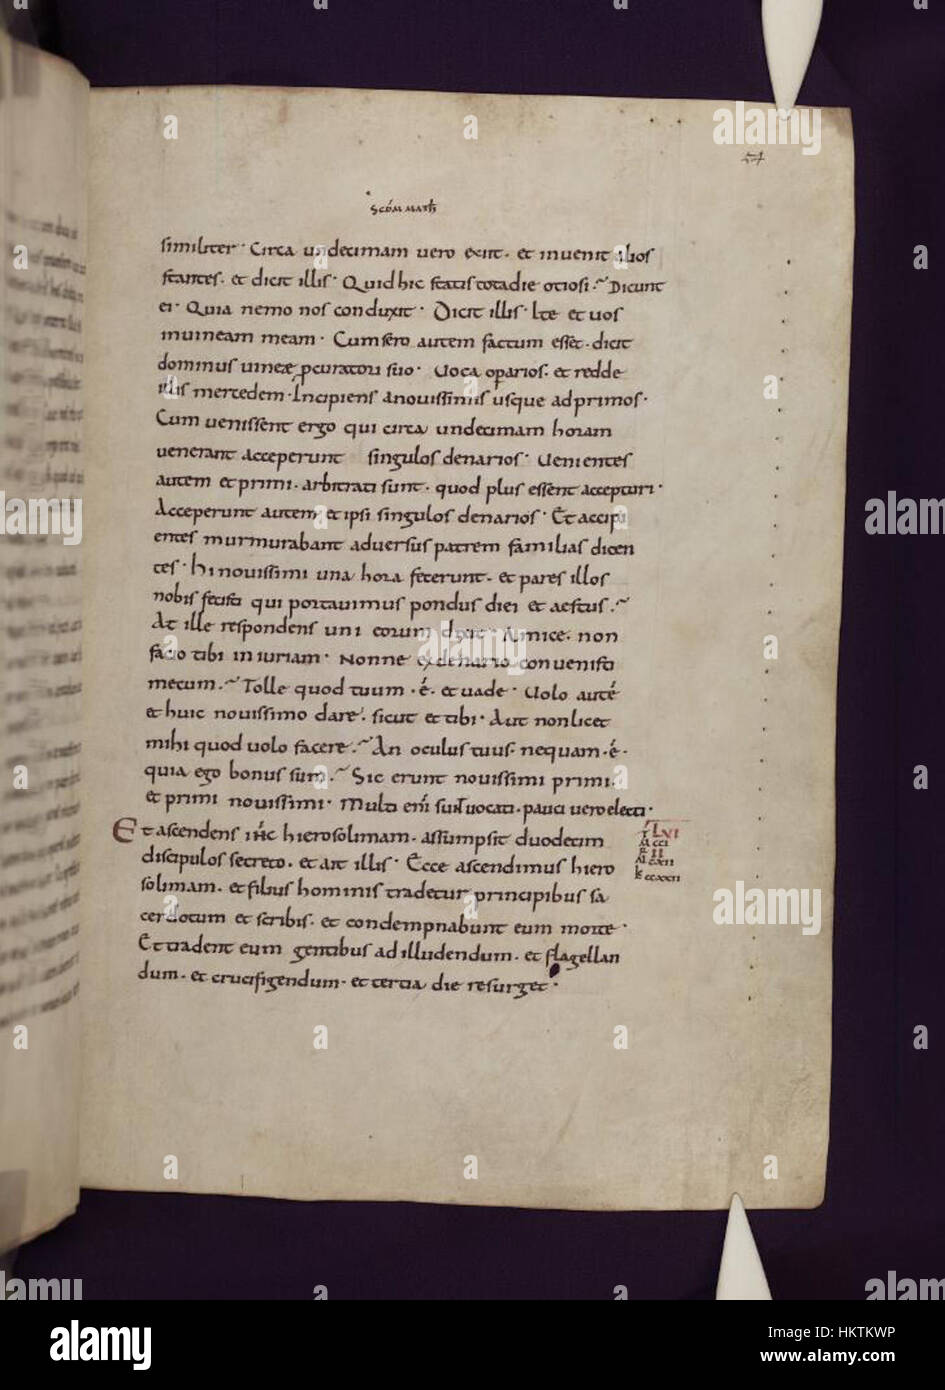 57
scdm math
similiter · Circa undecimam vero exiit · et invenit alios
stantes · et dicit illis · Quid hic statis tota die otiosi · Dicunt
ei · Quia nemo nos conduxit · Dicit illis · Ite et uos
in uineam meam · Cum sero autem factum esset · dicit
dominus uineæ pcuratori suo · Uoca oparios · et redde
illis mercedem · Incipiens a novissimis usque ad primos ·
Cum venissent ergo qui circa undecimam horam
venerant acceperunt singulos denarios · Venientes
autem et primi · arbitrati sunt · quod plus essent accepturi ·
Acceperunt autem et ipsi singulos denarios · Et accipi
entes murmurabant adversus patrem familias dicen
tes · hi novissimi una hora fecerunt · et pares illos
nobis fecisti qui portavimus pondus diei et aestus ·
At ille respondens uni eorum dixit · Amice · non
facio tibi iniuriam · Nonne ex denario convenisti
mecum · Tolle quod tuum · ē · et uade · Volo autē
et huic novissimo dare · sicut et tibi · Aut non licet
mihi quod uolo facere · An oculus tuus · nequam · ē ·
quia ego bonus sum · Sic erunt novissimi primi ·
et primi novissimi · Multi eni sunt vocati · pauci vero electi ·
Et ascendens ihc hierosolimam · assumpsit duodecim
discipulos secreto · et ait illis · Ecce ascendimus hiero
solimam · et filius hominis tradetur principibus sa
cerdotum et scribis · et condempnabunt eum morte ·
Et tradent eum gentibus ad illudendum · et flagellan
dum · et crucifigendum · et tertia die resurget ·
LVI
CCI
II
alamy
Image ID: HKTKWP
www.alamy.com